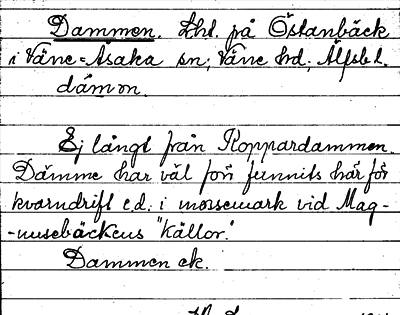 Dammen. Lht. på Östanbäck
i Väne-Åsaka sn; Väne hd. Älfsb l.
dámm.
Ej långt från Koppardammen.
Dämme har väl förr funnits här för
kvarndrift e.d. i mossemark vid Mag-
-nusebäckens "källor."
Dammen ek.